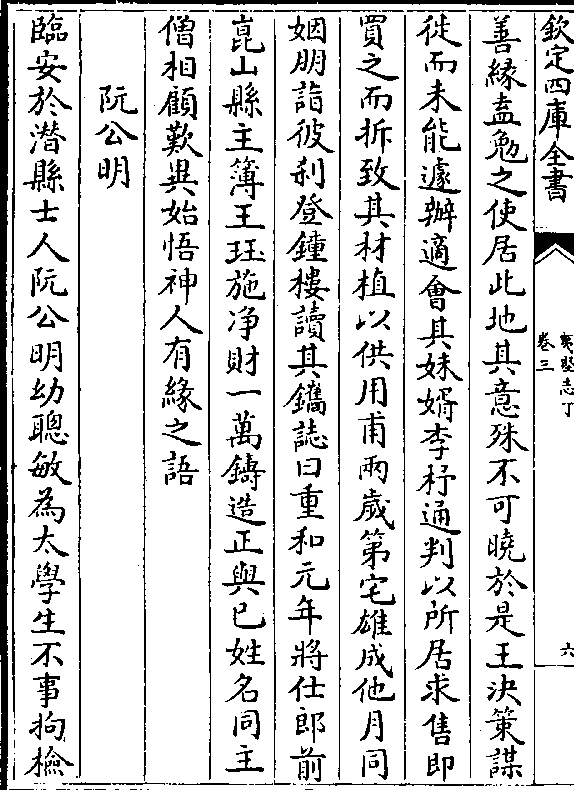 欽定四庫全書
夷堅志丁
卷三
六
善緣盍勉之使居此地其意殊不可曉於是王決策謀
徙而未能遽辦適會其妹婿李杼通判以所居求售即
買之而拆致其材植以供用甫兩歲第宅雄成他月同
姻朋詣彼刹登鐘樓讀其鐫誌曰重和元年將仕郎前
崑山縣主簿王珏施净財一萬鑄造正與已姓名同主
僧相顧歎異始悟神人有緣之語
阮公明
臨安於潛縣士人阮公明幼聰敏為太學生不事拘檢